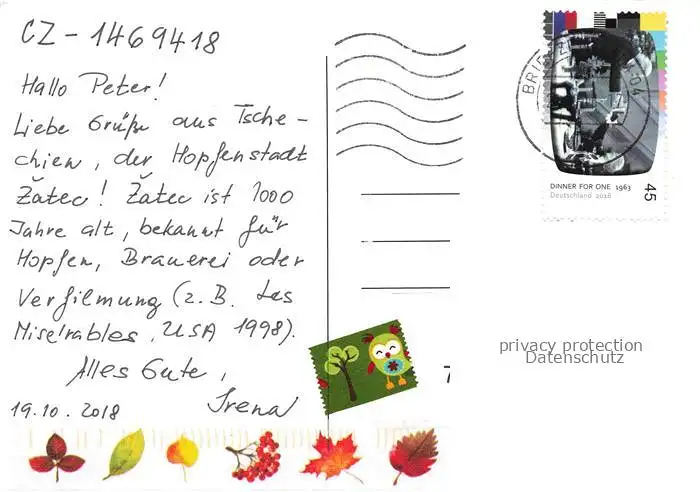 CZ - 1469418
Hallo Peter!
Liebe Grüße aus Tsche-
chien, der Hopfenstadt
Žatec! Žatec ist 1000
Jahre alt, bekannt für
Hopfen, Brauerei oder
Verfilmung (z.B. Les
Misérables, USA 1998).
Alles Gute,
Irena
19.10.2018
DINNER FOR ONE 1963
Deutschland 2018
45
privacy protection
Datenschutz